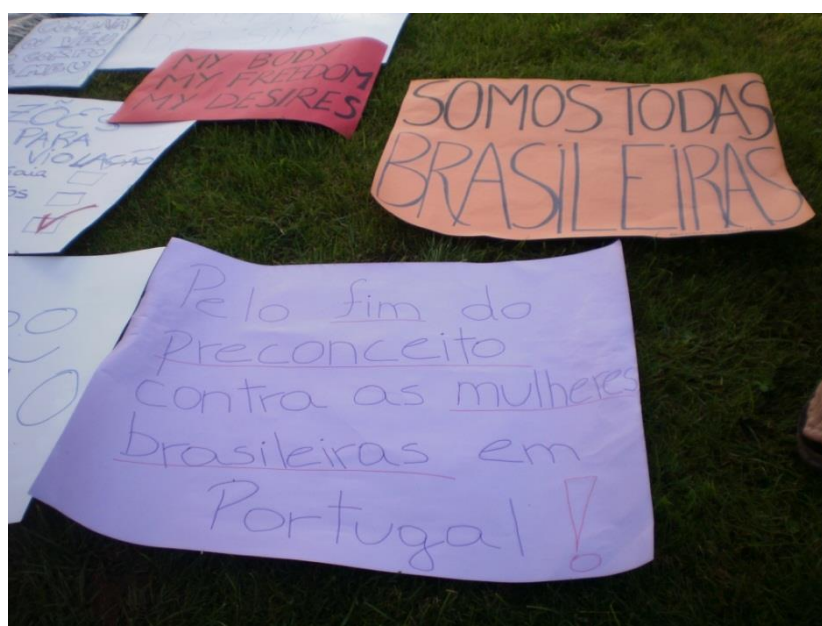 MY BODY
MY FREEDOM
MY DESIRES
SOMOS TODAS
BRASILEIRAS
PARA
VIOLAÇÃO
Pelo fim do
preconceito
contra as mulheres
brasileiras em
Portugal!